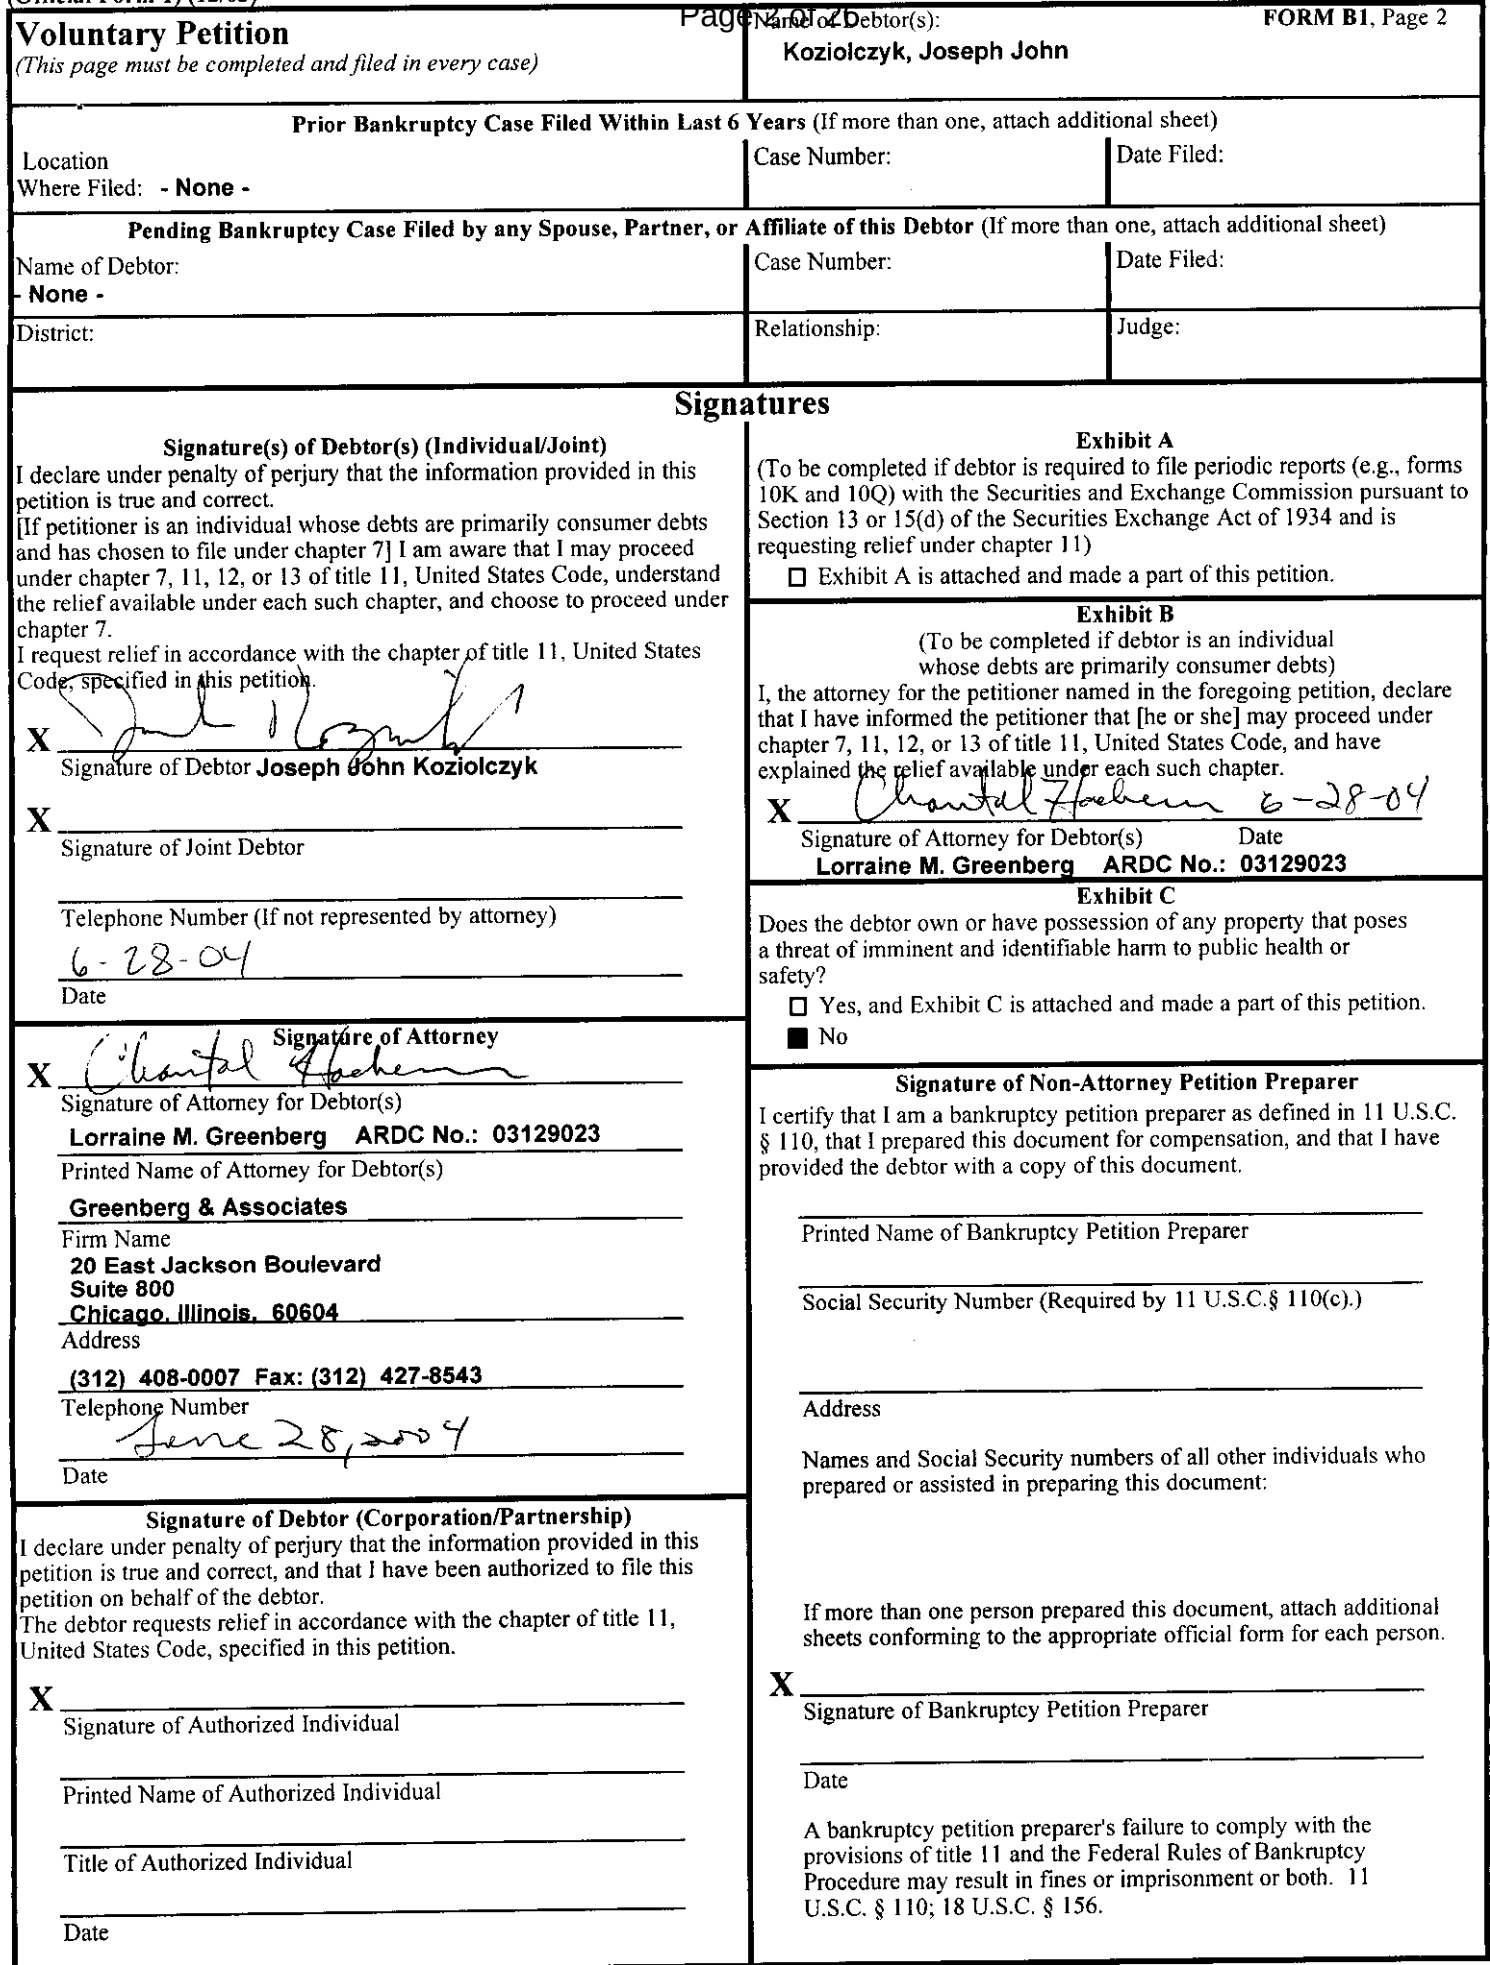 Page 2 of 26
Voluntary Petition
(This page must be completed and filed in every case)
Name of Debtor(s):
FORM B1, Page 2
Koziolczyk, Joseph John
Prior Bankruptcy Case Filed Within Last 6 Years (If more than one, attach additional sheet)
Location
Where Filed: - None -
Case Number:
Date Filed:
Pending Bankruptcy Case Filed by any Spouse, Partner, or Affiliate of this Debtor (If more than one, attach additional sheet)
Name of Debtor:
- None -
Case Number:
Date Filed:
District:
Relationship:
Judge:
Signatures
Signature(s) of Debtor(s) (Individual/Joint)
I declare under penalty of perjury that the information provided in this
petition is true and correct.
[If petitioner is an individual whose debts are primarily consumer debts
and has chosen to file under chapter 7] I am aware that I may proceed
under chapter 7, 11, 12, or 13 of title 11, United States Code, understand
the relief available under each such chapter, and choose to proceed under
chapter 7.
I request relief in accordance with the chapter of title 11, United States
Code, specified in this petition.
X
Signature of Debtor Joseph John Koziolczyk
X
Signature of Joint Debtor
Telephone Number (If not represented by attorney)
6-28-04
Date
Signature of Attorney
X Chantal
Signature of Attorney for Debtor(s)
Lorraine M. Greenberg ARDC No.: 03129023
Printed Name of Attorney for Debtor(s)
Greenberg & Associates
Firm Name
20 East Jackson Boulevard
Suite 800
Chicago, Illinois, 60604
Address
(312) 408-0007 Fax: (312) 427-8543
Telephone Number
June 28, 2004
Date
Signature of Debtor (Corporation/Partnership)
I declare under penalty of perjury that the information provided in this
petition is true and correct, and that I have been authorized to file this
petition on behalf of the debtor.
The debtor requests relief in accordance with the chapter of title 11,
United States Code, specified in this petition.
X
Signature of Authorized Individual
Printed Name of Authorized Individual
Title of Authorized Individual
Date
Exhibit A
(To be completed if debtor is required to file periodic reports (e.g., forms
10K and 10Q) with the Securities and Exchange Commission pursuant to
Section 13 or 15(d) of the Securities Exchange Act of 1934 and is
requesting relief under chapter 11)
☐ Exhibit A is attached and made a part of this petition.
Exhibit B
(To be completed if debtor is an individual
whose debts are primarily consumer debts)
I, the attorney for the petitioner named in the foregoing petition, declare
that I have informed the petitioner that [he or she] may proceed under
chapter 7, 11, 12, or 13 of title 11, United States Code, and have
explained the relief available under each such chapter.
X Chantal 6-28-04
Signature of Attorney for Debtor(s) Date
Lorraine M. Greenberg ARDC No.: 03129023
Exhibit C
Does the debtor own or have possession of any property that poses
a threat of imminent and identifiable harm to public health or
safety?
☐ Yes, and Exhibit C is attached and made a part of this petition.
■ No
Signature of Non-Attorney Petition Preparer
I certify that I am a bankruptcy petition preparer as defined in 11 U.S.C.
§ 110, that I prepared this document for compensation, and that I have
provided the debtor with a copy of this document.
Printed Name of Bankruptcy Petition Preparer
Social Security Number (Required by 11 U.S.C.§ 110(c).)
Address
Names and Social Security numbers of all other individuals who
prepared or assisted in preparing this document:
If more than one person prepared this document, attach additional
sheets conforming to the appropriate official form for each person.
X
Signature of Bankruptcy Petition Preparer
Date
A bankruptcy petition preparer's failure to comply with the
provisions of title 11 and the Federal Rules of Bankruptcy
Procedure may result in fines or imprisonment or both. 11
U.S.C. § 110; 18 U.S.C. § 156.